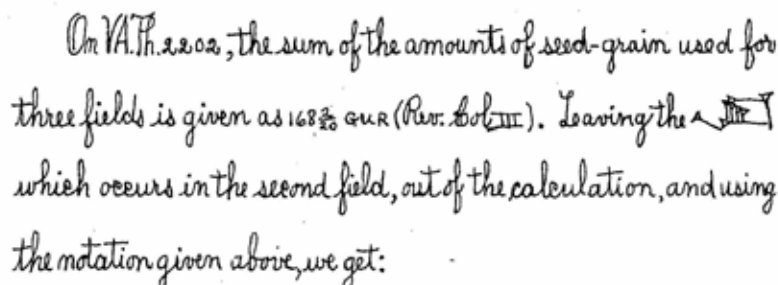 On VA.Th.2202, the sum of the amounts of seed-grain used for
three fields is given as 168 GUR (Rev. Col. III). Leaving the
which occurs in the second field, out of the calculation, and using
the notation given above, we get: